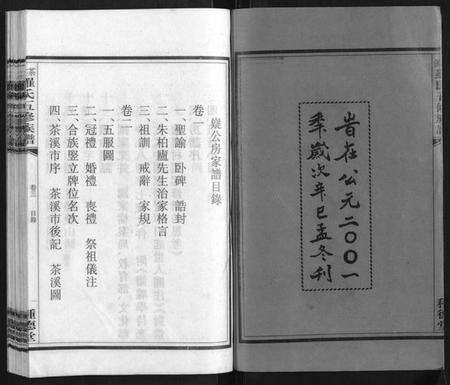 旹在公元二〇〇一
年歲次辛巳孟冬刋
鎡公房家譜目錄
卷一
一、聖諭 卧碑 誥封
二、朱柏廬先生治家格言
三、祖訓 戒辭 家規
卷二
一、五服圖
二、冠禮 婚禮 喪禮 祭祖儀注
三、合族竪立牌位名次
四、茶溪市序 茶溪市後記 茶溪圖
茶溪羅氏五修族譜
卷三 目錄